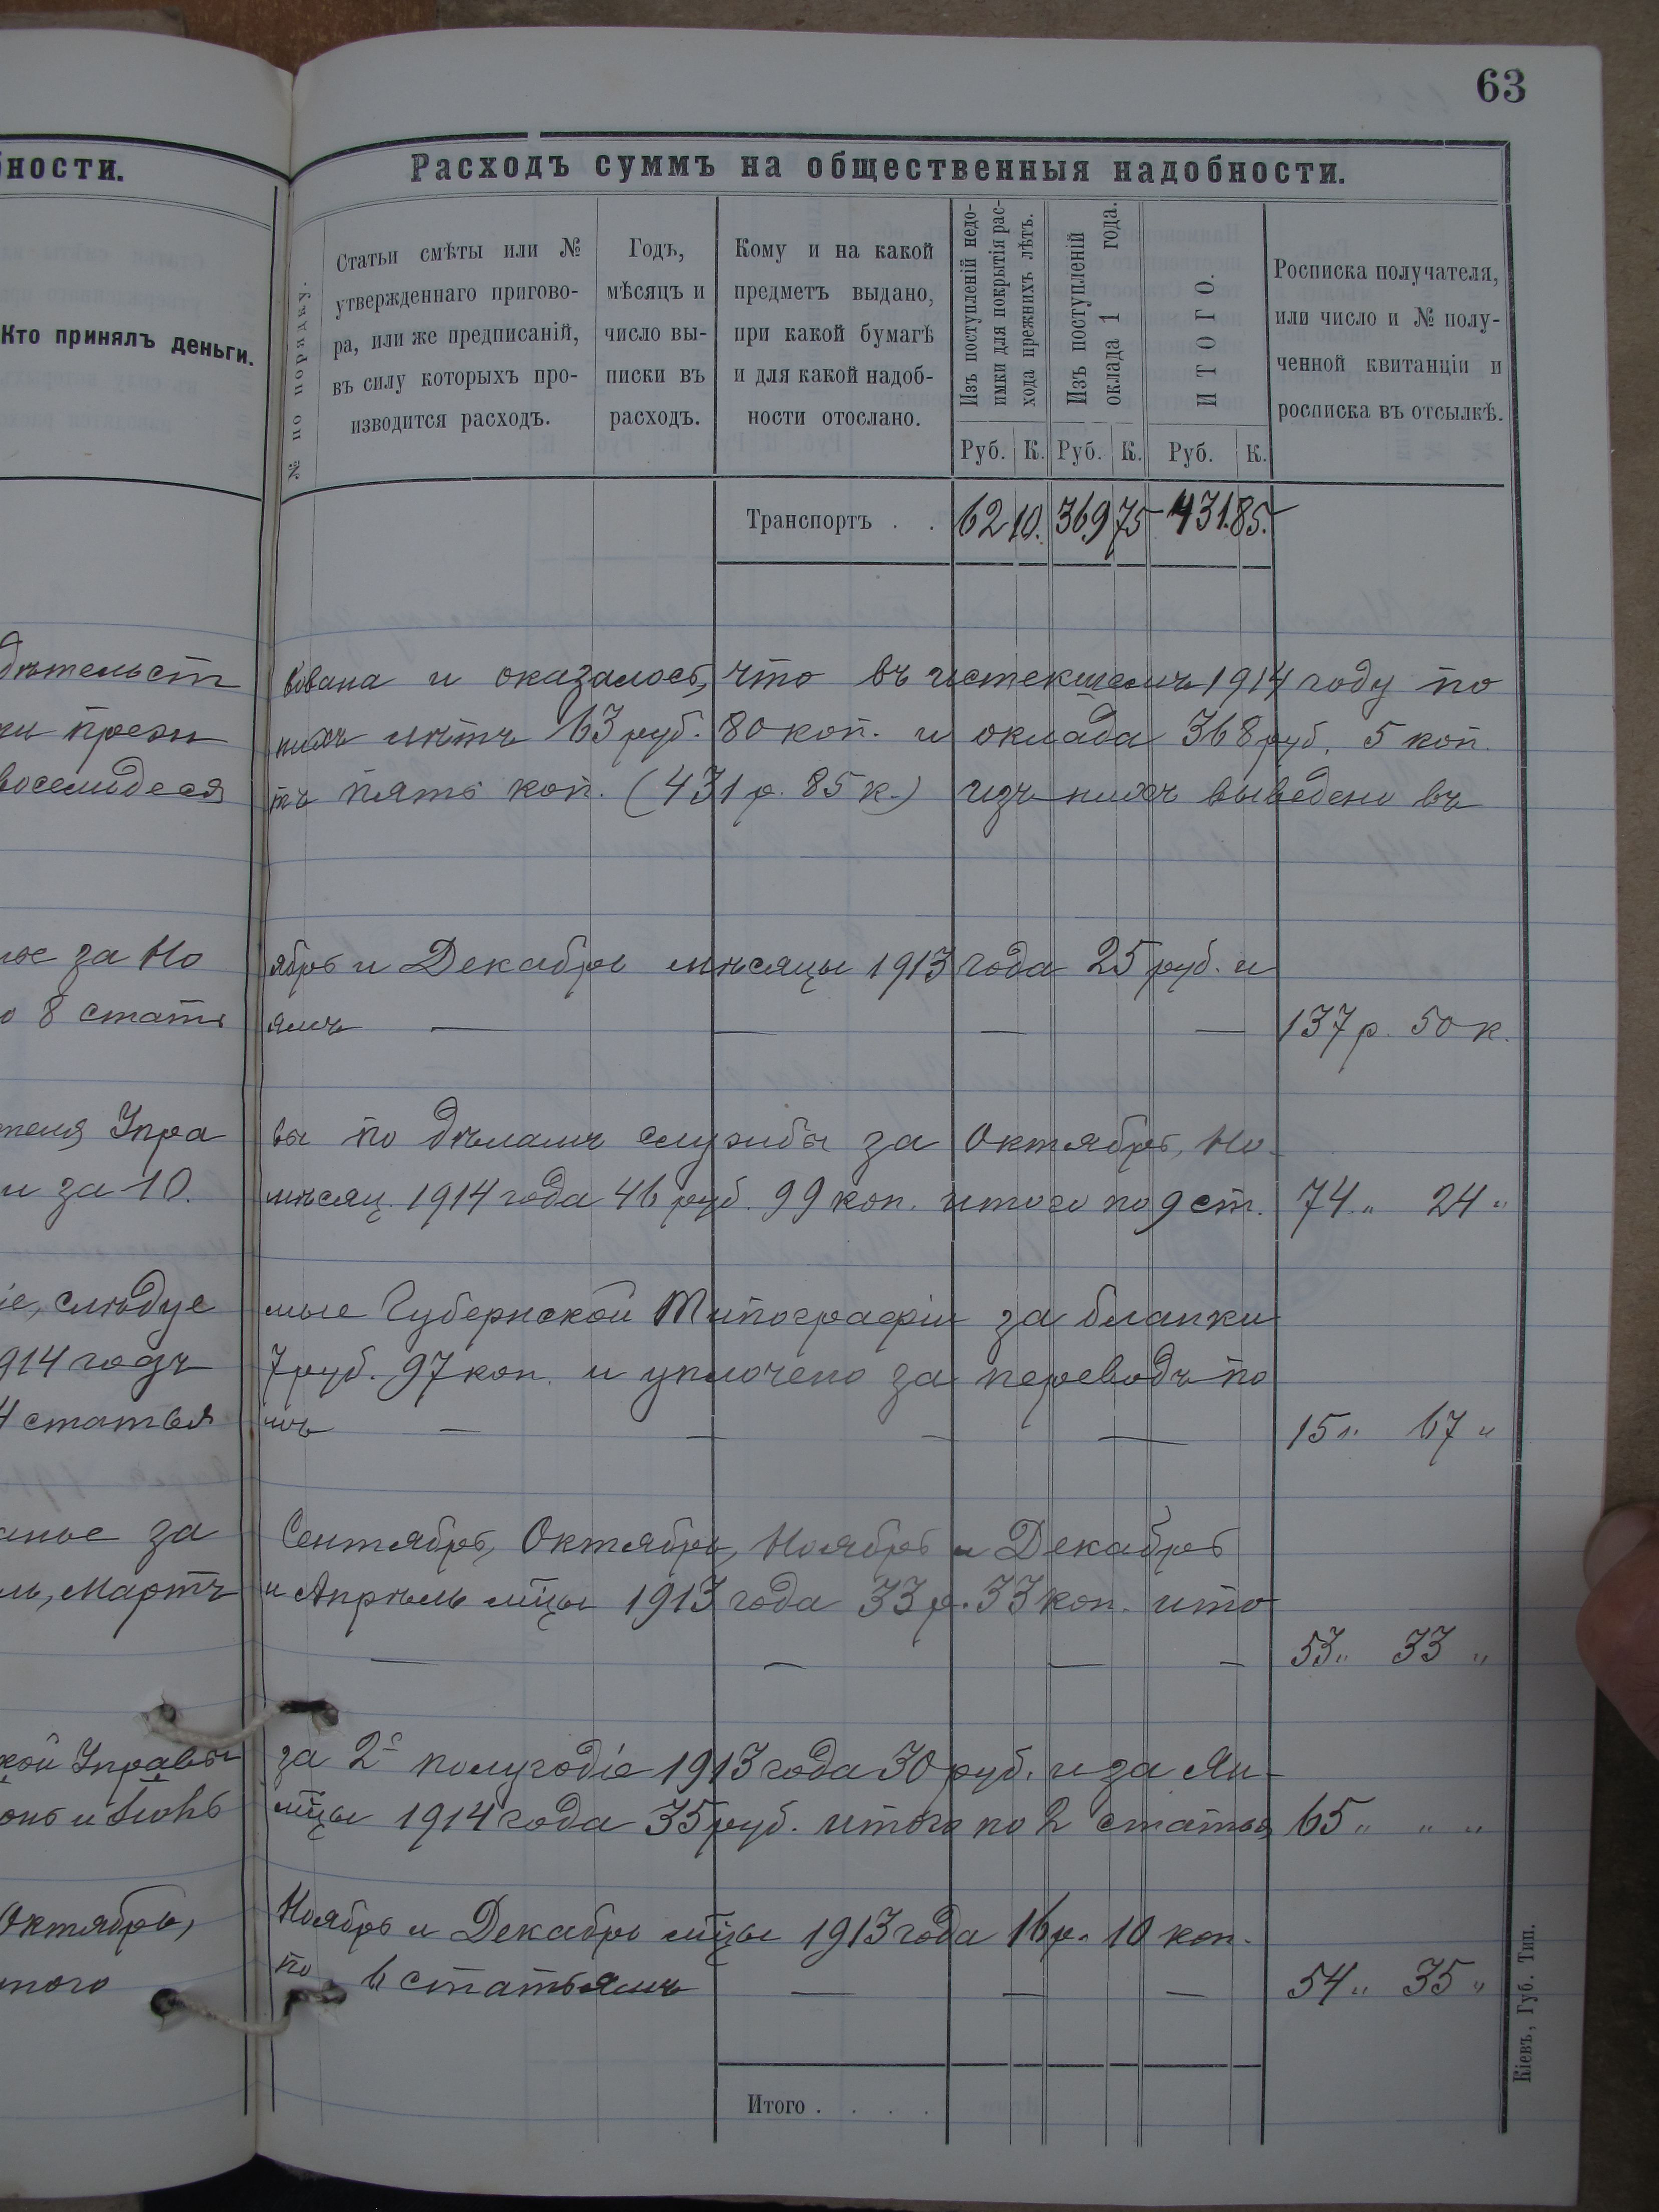 63
ности.
Кто принялъ деньги.
дѣтельст
прежн
восемьдеся
за Но
8 стать
теля Упра
и за 10.
іе, слѣдуе
914 годъ
4 статья
за
ль, Мартъ
кой Управы
и Іюнь
Октябрь,
того
Расходъ суммъ на общественныя надобности.
№ по порядку.
Статьи смѣты или №
утвержденнаго пригово-
ра, или же предписаній,
въ силу которыхъ про-
изводится расходъ.
Годъ,
мѣсяцъ и
число вы-
писки въ
расходъ.
Кому и на какой
предметъ выдано,
при какой бумагѣ
и для какой надоб-
ности отослано.
Изъ поступленій недо-
имки для покрытія рас-
хода прежнихъ лѣтъ.
Изъ поступленій
оклада 1 года.
ИТОГО.
Росписка получателя,
или число и № полу-
ченной квитанціи и
росписка въ отсылкѣ.
Руб. К. Руб. К. Руб. К.
Транспортъ . . 62 10. 369 75 431. 85.
вована и оказалось, что въ истекшемъ 1914 году по
нихъ лѣтъ 63 руб. 80 коп. и оклада 368 руб. 5 коп.
тъ пять коп. (431 р. 85 к.) изъ нихъ выведено въ
ябрь и Декабрь мѣсяцы 1913 года 25 руб. и
ямъ — — — — 137 р. 50 к.
вы по дѣламъ службы за Октябрь, Но-
мѣсяц. 1914 года 46 руб. 99 коп. итого по 9 ст. 74 „ 24 „
мые Губернской Типографіи за бланки
7 руб. 97 коп. и уплочено за переводъ по
мъ — — — — 15 „ 67 „
Сентябрь, Октябрь, Ноябрь и Декабрь
и Апрѣль мцы 1913 года 33 р. 33 коп. ито
— — — — 53 „ 33 „
за 2е полугодіе 1913 года 30 руб. и за Ян-
мцы 1914 года 35 руб. итого по 2 статья 65 „ „ „
Ноябрь и Декабрь мцы 1913 года 16 р. 10 коп.
по 6 статьямъ — — — 54 „ 35 „
Итого . . . .
Кіевъ, Губ. Тип.